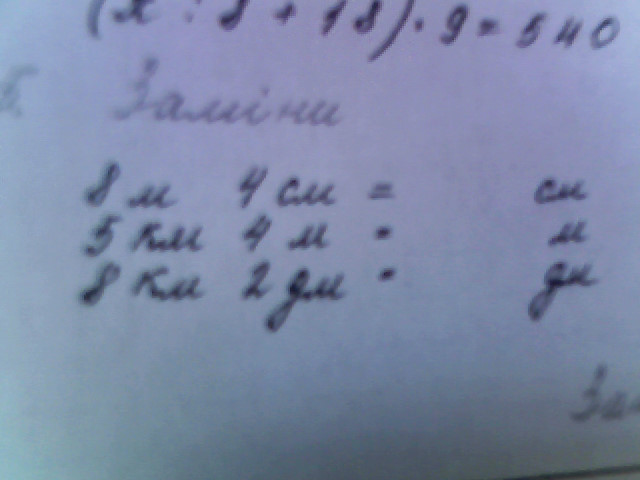 (x : 8 + 18) · 9 = 540
5. Заміни
8 м 4 см = см
5 км 4 м = м
8 км 2 дм = дм